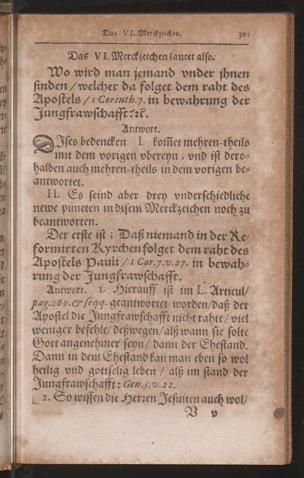 Das VI. Merckzeichen. 301
Das VI. Merckzeichen lautet also.
Wo wird man jemand vnder jhnen
finden / welcher da folget dem raht des
Apostels / 1 Corinth. 7. in bewahrung der
Jungfrawschafft? ꝛc.
Antwort.
DIses bedencken I. kom̃et mehren-theils
mit dem vorigen vbereyn; vnd ist dero-
halben auch mehren-theils in dem vorigen be-
antwortet.
II. Es seind aber drey vnderschiedliche
newe puncten in disem Merckzeichen noch zu
beantworten.
Der erste ist; Daß niemand in der Re-
formirten Kyrchen folget dem raht des
Apostels Pauli / 1 Cor. 7. v. 27. in bewah-
rung der Jungfrawschafft.
Antwort. 1. Hierauff ist im L. Articul /
pag. 260. & seqq. geantwortet worden / daß der
Apostel die Jungfrawschafft nicht rahte / viel
weniger befehle / deßwegen / alß wann sie solte
Gott angenehmer seyn / dann der Ehestand.
Dann in dem Ehestand kan man eben so wol
heilig vnd gottselig leben / alß im stand der
Jungfrawschafft: Gen. 5. v. 22.
2. So wissen die Herren Jesuiten auch wol /
V v